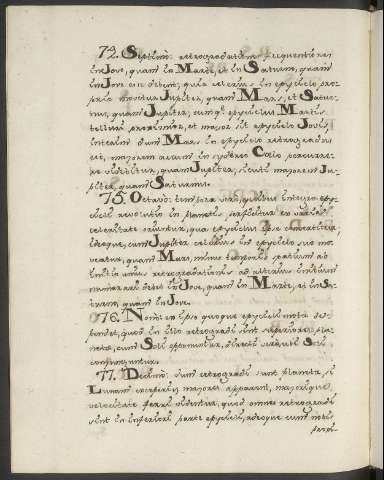 74. Septimo: retrogradationes frequentiores
in Jove, quam in Marte, et in Saturno, quam
in Jove esse debent; quia celerius in epycyclo pro-
prio movetur Jupiter, quam Mars, et Satur-
nus, quam Jupiter; cum epycyclus Martis
telluri proximior, et major sit epycyclo Jovis
interim dum Mars in epycyclo retrogradus
est, majorem arcum in sydereo Coelo percurre-
re videbitur, quam Jupiter; sicuti majorem Ju-
piter, quam Saturnus.
75. Octavo: tempora vero, quibus integra epy-
cycli revolutio in planetis perficitur ex varia
celeritate oriuntur, qua epycyclus ipse
ideoque, cum Jupiter celerius in epycyclo suo mo-
veatur, quam Mars, minus temporis spatium ab
initio unius retrogradationis ad alterius initium
numerari debet in Jove, quam in Marte, et in Sa-
turno, quam in Jove.
76. Nono: ex ipso quoque epycycli motu se-
quitur, quod in illo retrogradi sint superiores pla-
netae, cum Soli opponuntur, directi vero cum Soli
conjunguntur.
77. Decimo: dum retrogradi sunt planetae, si
Lunam excipias, majores apparent, majorique
velocitate ferri videntur, quod omnes retrogradi
sint in inferiori parte epycycli, adeoque cum nobis